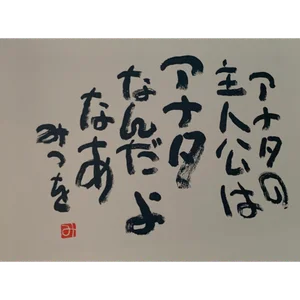 アナタの
主人公は
アナタ
なんだよ
なあ
みつを